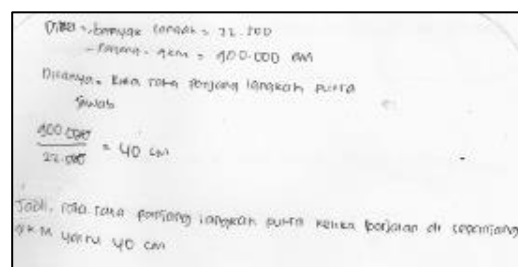 banyak langkah = 22.500
- Panjang = 9km = 900.000 cm
Ditanya = Rata rata panjang langkah putra
Jawab
900.000
22.500 = 40 cm
Jadi, rata rata panjang langkah putra ketika berjalan di sepanjang
9KM yaitu 40 cm